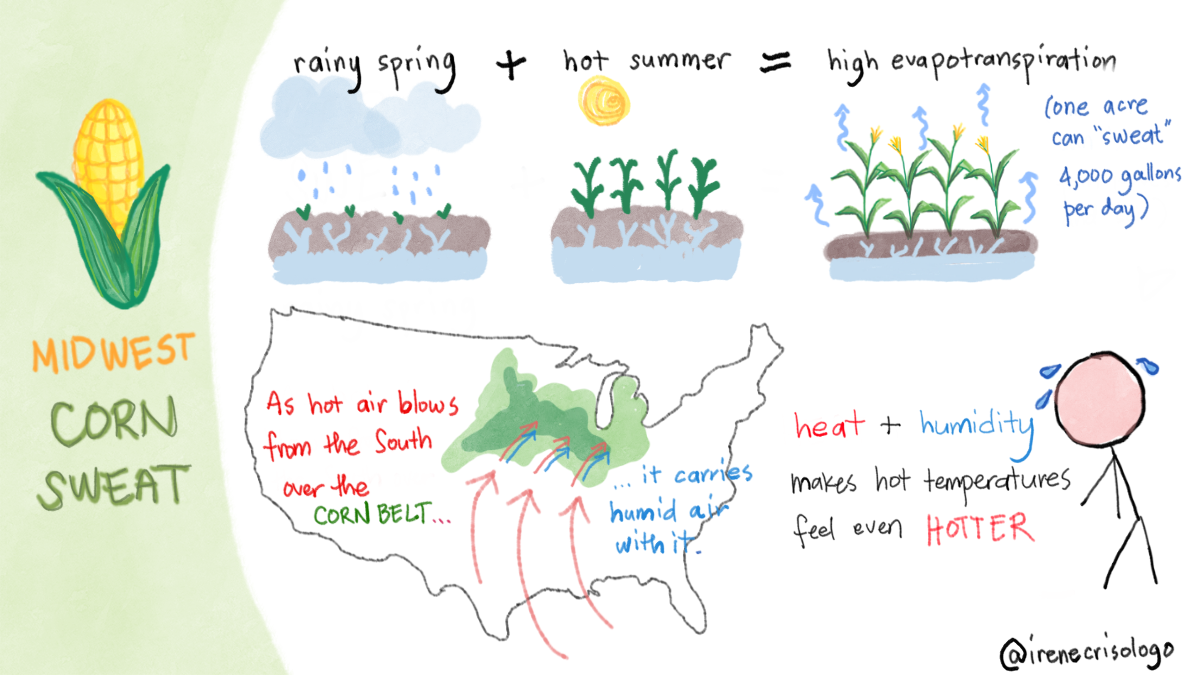 MIDWEST
CORN
SWEAT
rainy spring + hot summer = high evapotranspiration
(one acre
can "sweat"
4,000 gallons
per day)
As hot air blows
from the South
over the
CORN BELT...
... it carries
humid air
with it.
heat + humidity
makes hot temperatures
feel even HOTTER
@irenecrisologo